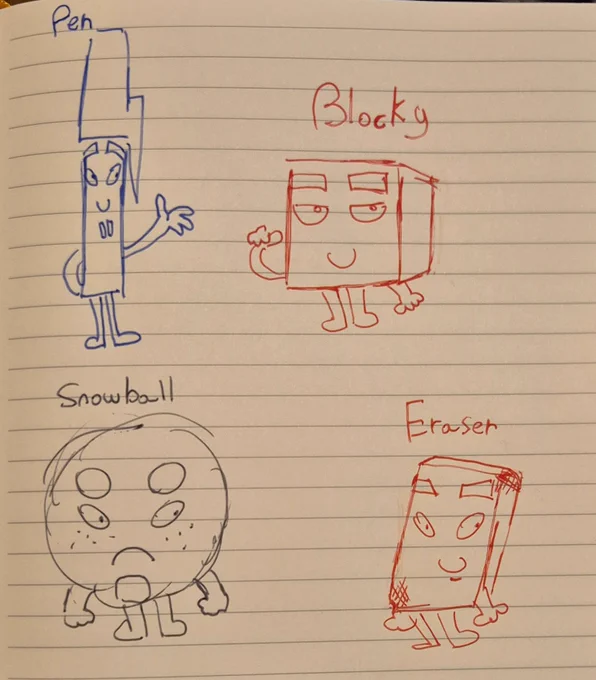 Pen
Blocky
Snowball
Eraser